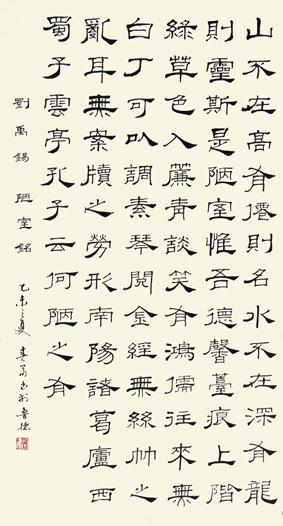 山不在高有僊則名水不在深有龍
則靈斯是陋室惟吾德馨薹痕上階
綠草色入簾青談笑有鴻儒往來無
白丁可以調素琴閱金經無絲竹之
亂耳無案牘之勞形南陽諸葛廬西
蜀子雲亭孔子云何陋之有
劉禹錫陋室銘
乙未之夏